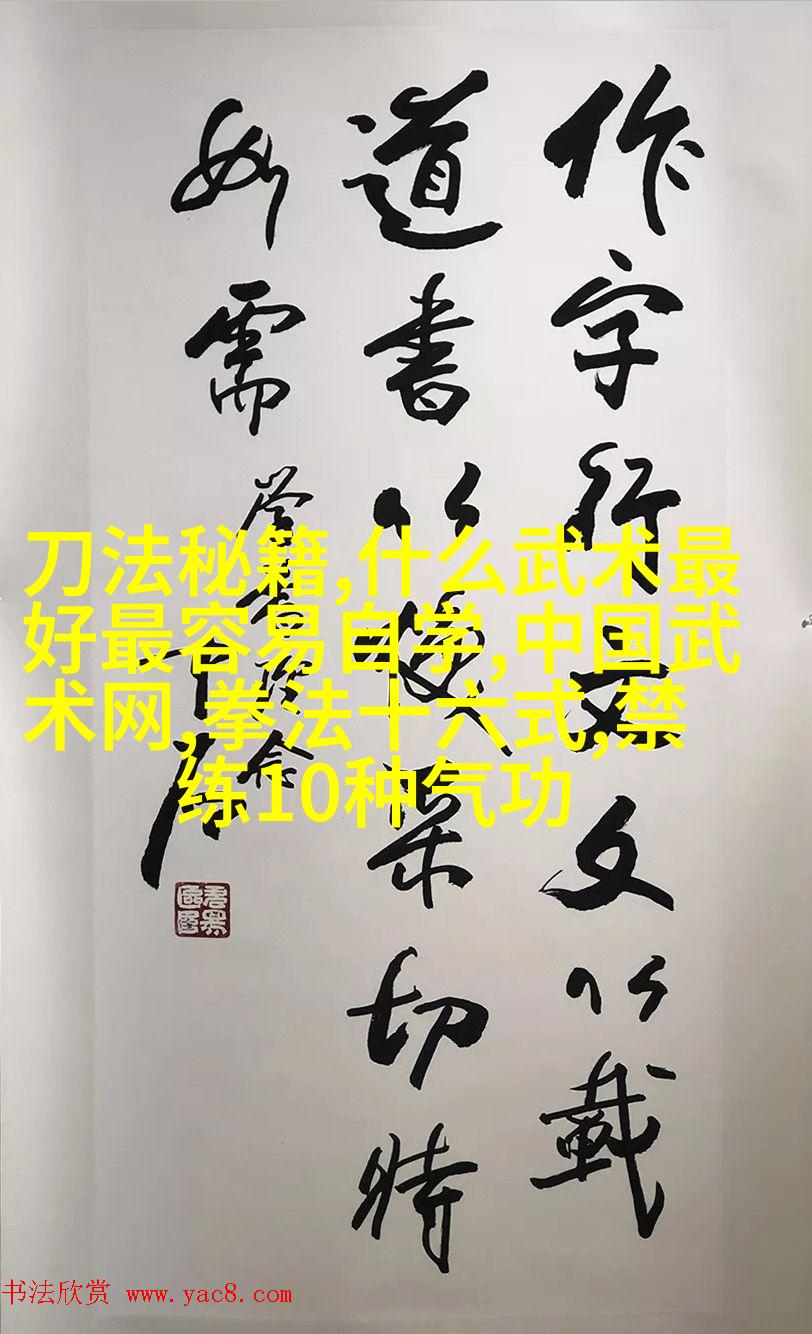 作字行文文以載
道書以煥采切時
如需
刀法秘籍,什么武术最
好最容易自学,中国武
术网,拳法十六式,禁
练10种气功
书法欣赏 www.yac8.com